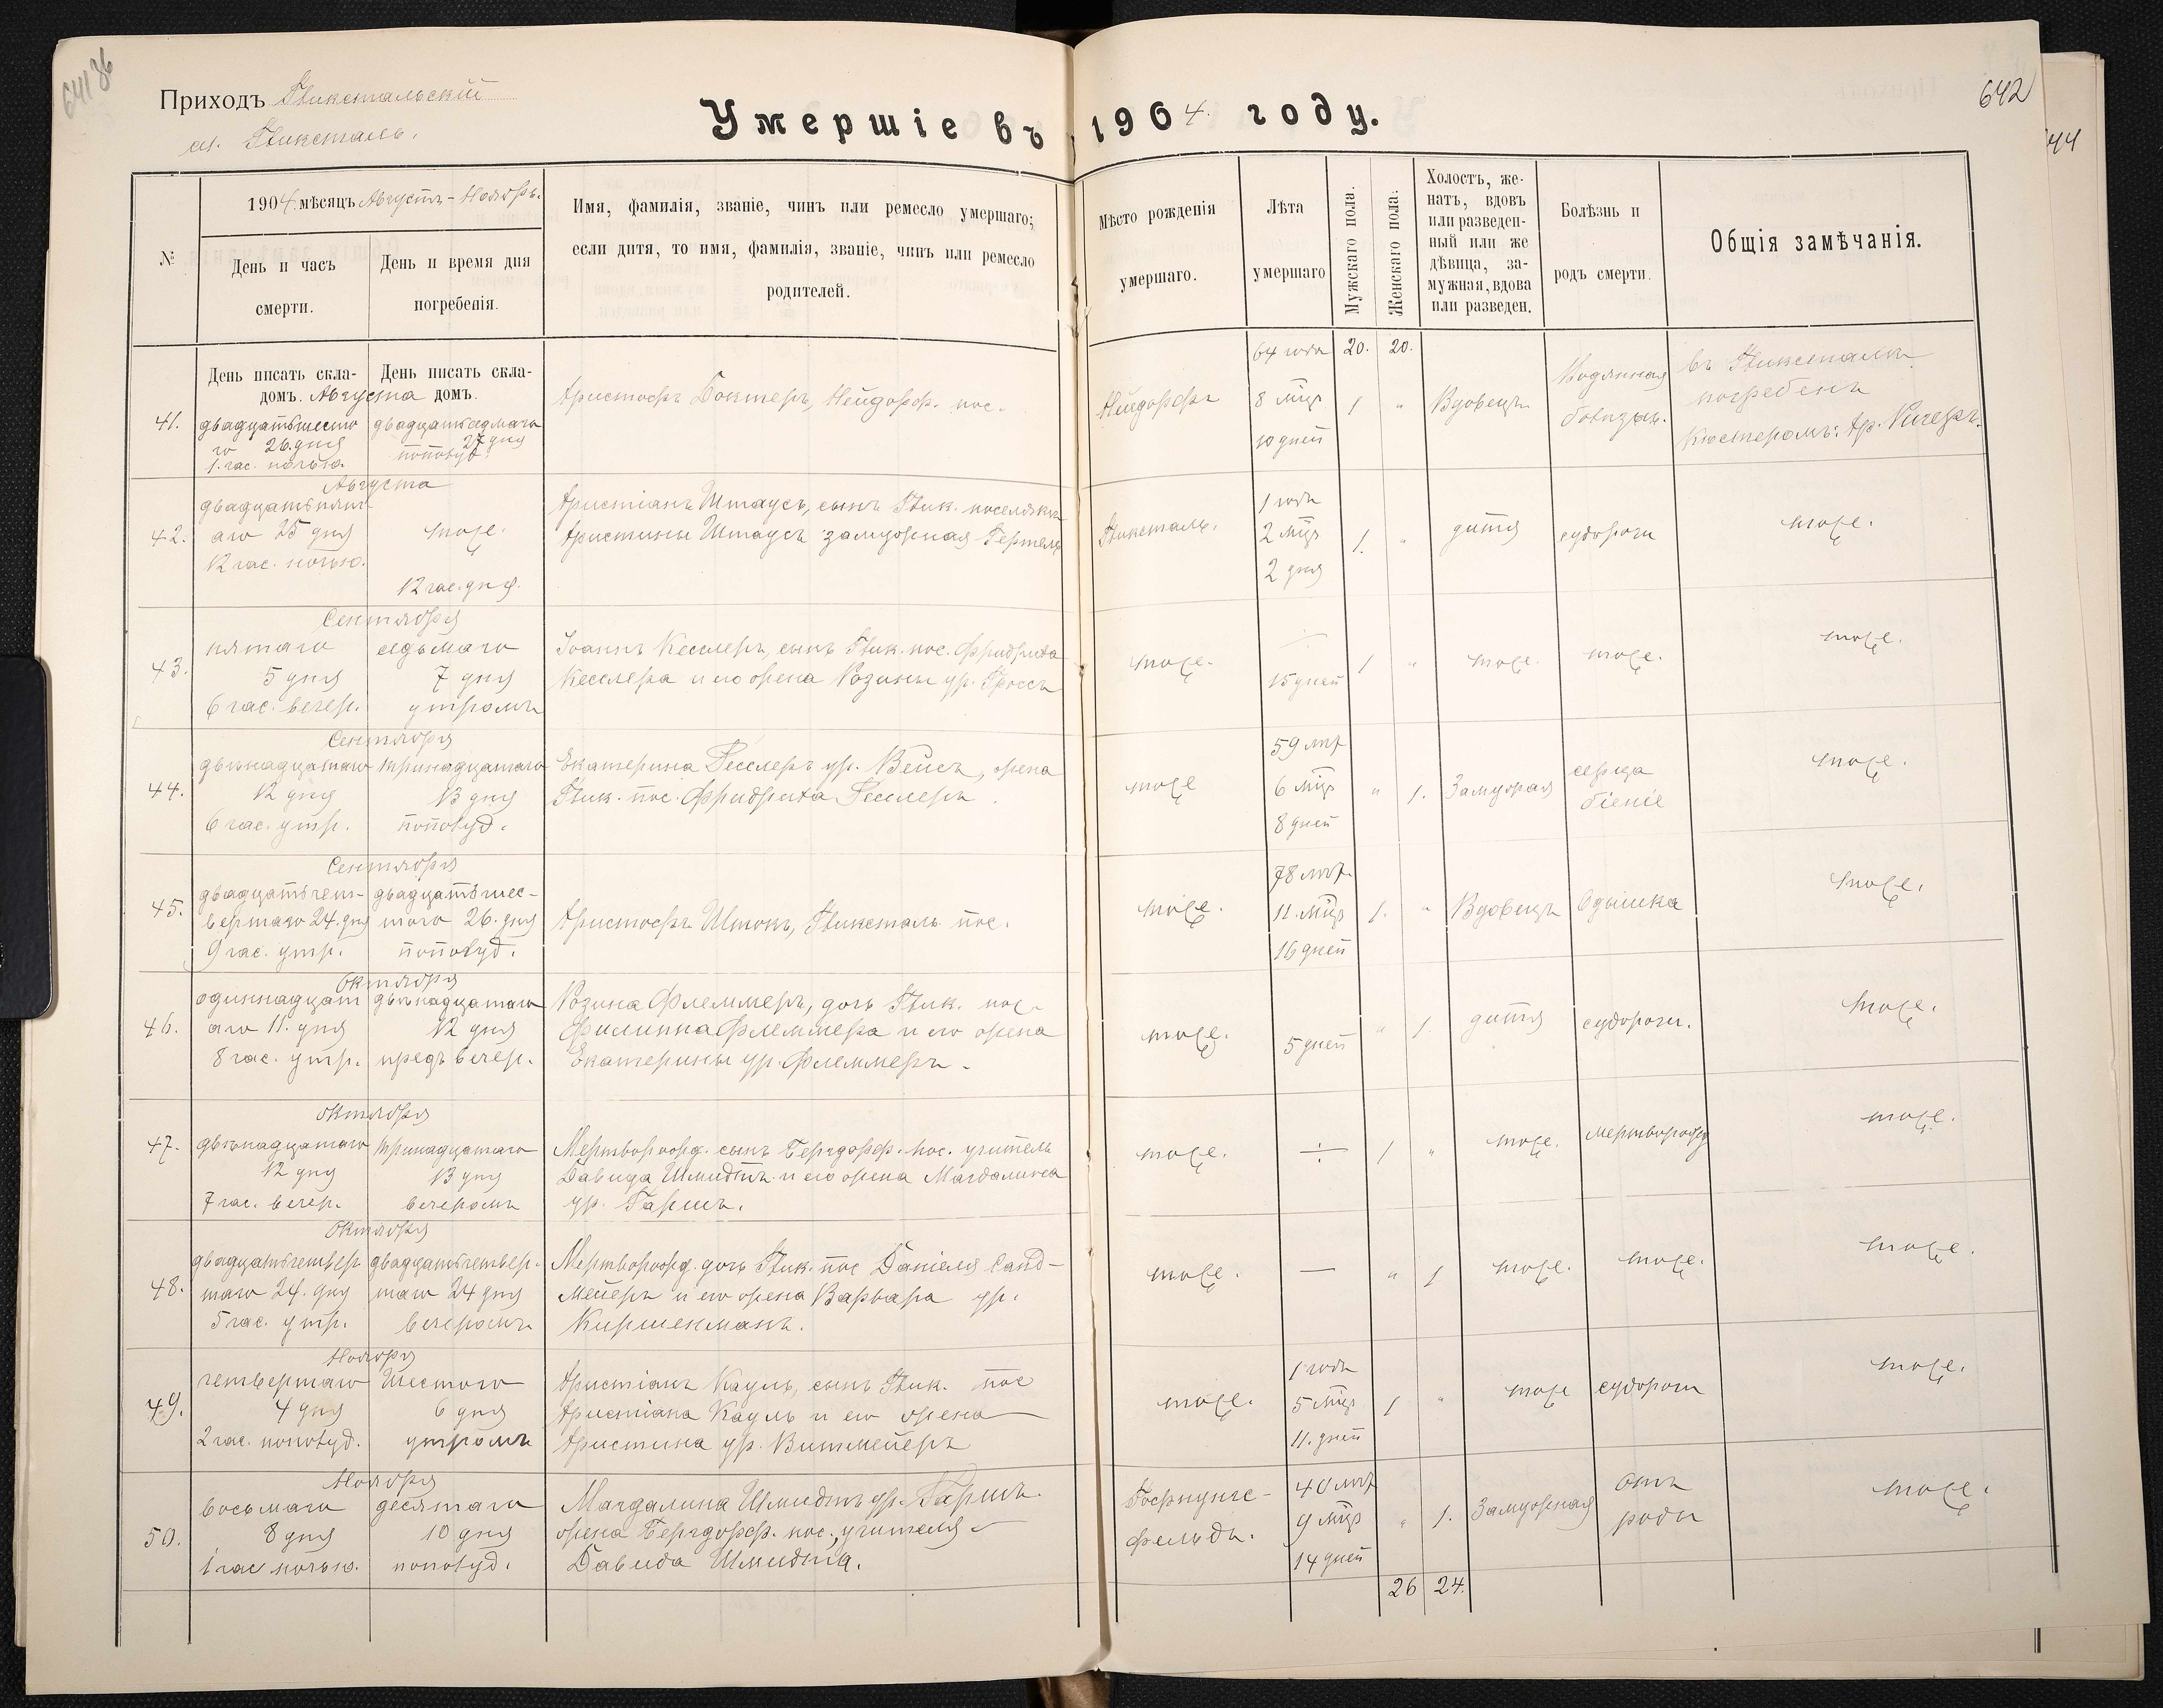 64186
Приходъ Глюкстальскій
кл. Глюксталь.
Умершіе въ 1904. году.
642
44
№
1904. мѣсяцъ Августъ - Ноябрь.
День и часъ
смерти.
День и время дня
погребенія.
Имя, фамилія, званіе, чинъ или ремесло умершаго;
если дитя, то имя, фамилія, званіе, чинъ или ремесло
родителей.
Мѣсто рожденія
умершаго.
Лѣта
умершаго
Мужскаго пола.
Женскаго пола.
Холостъ, же-
натъ, вдовъ
или разведен-
ный или же
дѣвица, за-
мужная, вдова
или разведен.
Болѣзнь и
родъ смерти.
Общія замѣчанія.
День писать скла-
домъ.
День писать скла-
домъ.
Августа
41.
двадцатьшесто
го 26. дня
1. час. ночью.
двадцатьседмаго
27 дня
пополуд.
Христофъ Доктеръ, Нейдорф. пос.
Нейдорфъ
64 года
8 мѣц
10 дней
20. 20.
1 "
Вдовецъ
Водянная
болѣзнь.
въ Глюксталѣ
погребенъ
Кюстеромъ: Хр. Ричеръ.
Августа
42.
двадцатьпят-
аго 25 дня
12 час. ночью.
тоже.
12 час. дня.
Христіанъ Штаусъ, сынъ Глюк. поселянки
Христины Штаусъ замужная Гертель
Глюксталь.
1 годъ
2 мѣц
2 дня
1. "
дитя
судороги
тоже.
Сентября
43.
пятаго
5 дня
6 час. вечер.
седьмаго
7 дня
утромъ
Іоаннъ Кесслеръ, сынъ Глюк. пос. Фридриха
Кесслера и его жена Розины ур. Гроссъ
тоже.
15 дней
1 "
тоже.
тоже.
тоже.
Сентября
44.
двѣнадцатаго
12 дня
6 час. утр.
тринадцатаго
13 дня
пополуд.
Екатерина Гесслеръ ур. Вейсъ, жена
Глюк. пос. Фридриха Гесслеръ.
тоже
59 лѣт
6 мѣц
8 дней
" 1.
Замужная
сердца
біеніе
тоже.
Сентября
45.
двадцатьчет-
вертаго 24. дня
9 час. утр.
двадцатьшес-
таго 26. дня
пополуд.
Христофъ Штокъ, Глюксталь. пос.
тоже.
78 лѣт.
11. мѣц
16 дней
1. "
Вдовецъ
Одышка
тоже.
Октября
46.
одиннадцат
аго 11. дня
8 час. утр.
двѣнадцатаго
12 дня
предъ вечер.
Розина Флеммеръ, дочь Глюк. пос.
Филиппа Флеммера и его жена
Екатерины ур. Флеммеръ.
тоже.
5 дней
" 1
дитя
судороги.
тоже.
Октября
47.
двѣнадцатаго
12 дня
7 час. вечер.
тринадцатаго
13 дня
вечеромъ
Мертворожд. сынъ Бергдорф. пос. учитель
Давида Шмидтъ и его жена Магдалинеа
ур. Гаришъ.
тоже.
÷
1 "
тоже.
мертворожд
тоже.
Октября
48.
двадцатьчетвер
таго 24. дня
5 час. утр.
двадцатьчетвер-
таго 24 дня
вечеромъ
Мертворожд. дочь Глюк. пос Даніеля Санд-
мейеръ и его жена Варвара ур.
Киршенманъ.
тоже.
—
" 1
тоже.
тоже.
тоже.
Ноября
49.
четвертаго
4 дня
2 час. пополуд.
Шестого
6 дня
утромъ
Христіанъ Кауль, сынъ Глюк. пос
Христіана Кауль и его жена
Христина ур. Витмейеръ
тоже.
1 годъ
5 мѣц
11. дней
1 "
тоже
судороги
тоже.
Ноября
50.
восьмаго
8 дня
1 час ночью.
десятаго
10 дня
пополуд.
Магдалина Шмидтъ ур. Гаришъ.
жена Бергдорф. пос., учителя
Давида Шмидта.
Гофнунгс-
фельдъ.
40 лѣт
9 мѣц
14 дней
" 1.
Замужная
отъ
родъ
тоже.
26 24.